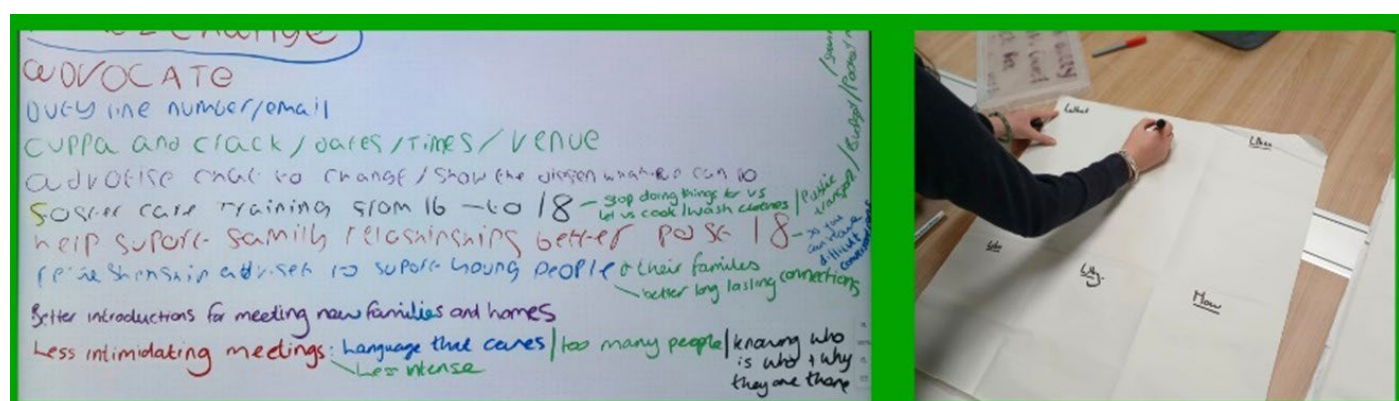 change
advocate
Duty line number/email
cuppa and crack/dates/times/venue
advotise chat to change/show the
foster care training from 16 - to 18 - stop doing things for us
let us cook/wash clothes
/Public transport
/Budget/Pocket
help suport family relashinships better past 18 - so they can have difficult conversations
adviser to suport young people & their families
better long lasting connections
Better introductions for meeting new families and homes
Less intimidating meetings: Language that cares/too many people/knowing who
is who + why
they are there
Less intense
What
When
Who
Why
How